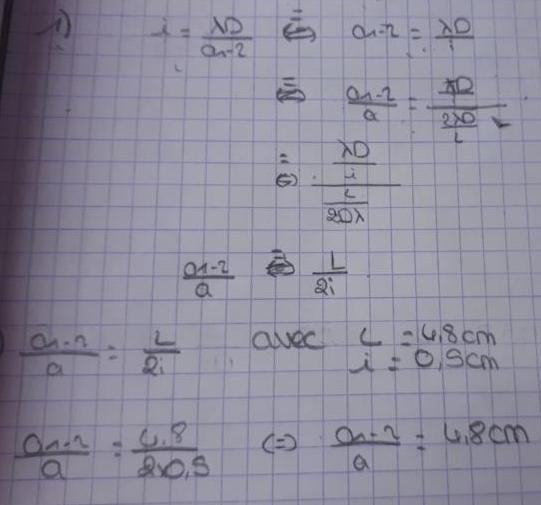 1) i = λD/a₁₋₂ ⇔ a₁₋₂ = λD/i
⇔ a₁₋₂/a = (λD)/(2λD/L)
= ⇔ (λD/i)/(L/2Dλ)
a₁₋₂/a ⇔ L/2i
) a₁₋₂/a = L/2i avec L = 4,8cm
i = 0,5cm
a₁₋₂/a = 4,8/2x0,5 (=) a₁₋₂/a = 4,8cm